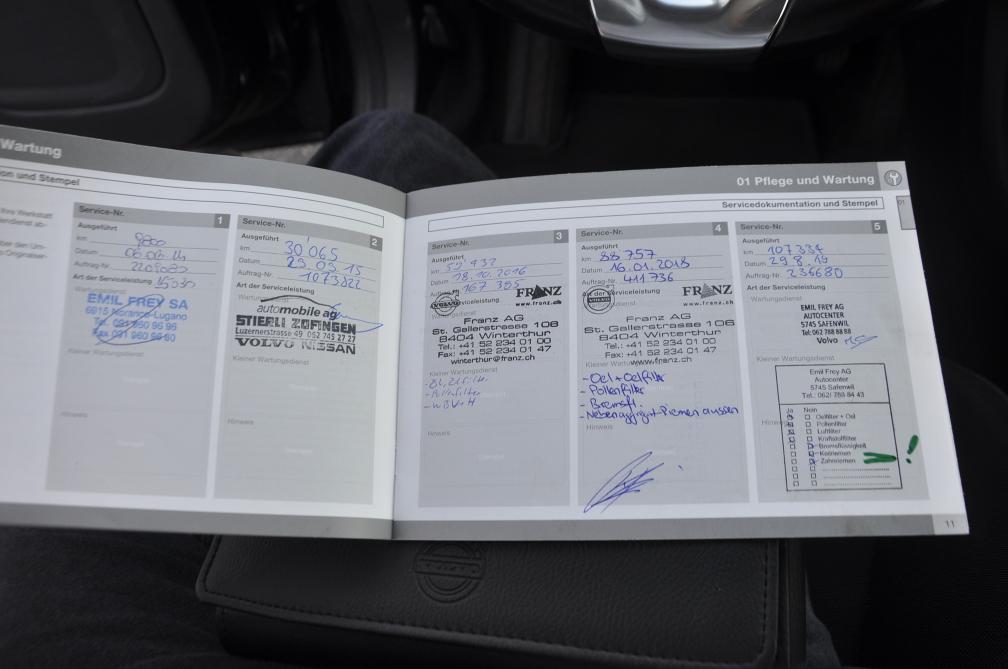 Wartung
ion und Stempel
Ihre Werkstatt
Service-Nr. 1
Ausgeführt
km 9800
Datum 06.06.14
Auftrag-Nr.
Art der Serviceleistung
Wartungsdienst
EMIL FREY SA
6915 Noranco-Lugano
Tel. 091 960 96 96
Fax 091 960 96 80
Kleiner Wartungsdienst
Hinweis
Service-Nr. 2
Ausgeführt
km 30'065
Datum 23.03.15
Auftrag-Nr. 1073822
Art der Serviceleistung
automobile ag
STIERLI ZOFINGEN
Luzernerstrasse 49 062 745 27 27
VOLVO NISSAN
Kleiner Wartungsdienst
Hinweis
01 Pflege und Wartung
Servicedokumentation und Stempel
01
Service-Nr. 3
Ausgeführt
km
Datum 18.10.2016
167 355
Serviceleistung
FRANZ
www.franz.ch
Franz AG
St. Gallerstrasse 108
8404 Winterthur
Tel.: +41 52 234 01 00
Fax: +41 52 234 01 47
winterthur@franz.ch
Kleiner Wartungsdienst
Hinweis
Service-Nr. 4
Ausgeführt
km 88 757
Datum 16.01.2018
Auftrag-Nr. 411 736
Art der Serviceleistung
FRANZ
www.franz.ch
Franz AG
St. Gallerstrasse 106
8404 Winterthur
Tel.: +41 52 234 01 00
Fax: +41 52 234 01 47
www.franz.ch
Kleiner Wartungsdienst
- Oel + Oelfilter
- Pollenfilter
- Bremsfl.
- Nebenaggregat-Riemen aussen
Hinweis
Service-Nr. 5
Ausgeführt
km 107 334
Datum 29.8.19
Auftrag-Nr. 236680
Art der Serviceleistung
Wartungsdienst
EMIL FREY AG
AUTOCENTER
5745 SAFENWIL
Tel. 062 788 88 88
Volvo
Kleiner Wartungsdienst
Emil Frey AG
Autocenter
5745 Safenwil
Tel.: 062/ 788 84 43
Ja Nein
Oelfilter + Oel
Pollenfilter
Luftfilter
Kraftstofffilter
Bremsflüssigkeit
Keilriemen
Zahnriemen
!
11